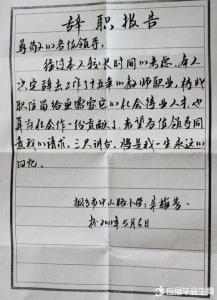 辞职报告
尊敬的各位领导:
经过本人较长时间的考虑,本人
决定辞去工作了十五年的教师职业,将此
职位留给更需要它的社会待业人才,也
算为社会作一份贡献了,希望各位领导同
意我的请求,三尺讲台,将是我一生永远的
回忆。
桐乡市中山路小学:
于2011年5月6日
应届毕业生网